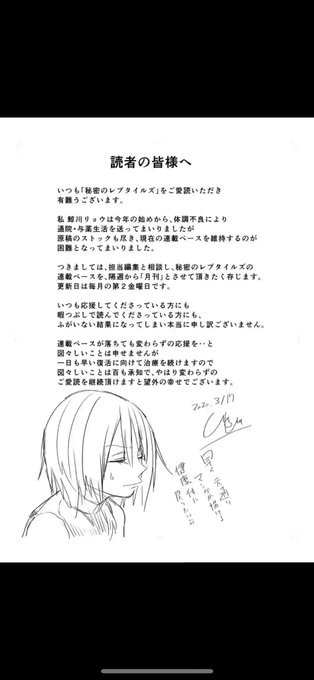 読者の皆様へ
いつも「秘密のレプタイルズ」をご愛読いただき
有難うございます。
私 鯨川リョウは今年の始めから、体調不良により
通院・与薬生活を送ってまいりましたが
原稿のストックも尽き、現在の連載ペースを維持するのが
困難となってまいりました。
つきましては、担当編集と相談し、秘密のレプタイルズの
連載ペースを、隔週から「月刊」とさせて頂きたく存じます。
更新日は毎月の第2金曜日です。
いつも応援してくださっている方にも
暇つぶしで読んでくださっている方にも、
ふがいない結果になってしまい本当に申し訳ございません。
連載ペースが落ちても変わらずの応援を‥と
図々しいことは申せませんが
一日も早い復活に向けて治療を続けますので
図々しいことは百も承知で、やはり変わらずの
ご愛読を継続頂けますと望外の幸せでございます。
2020.3/17
早く元通り
マンガが描ける
健康体に
戻りたい